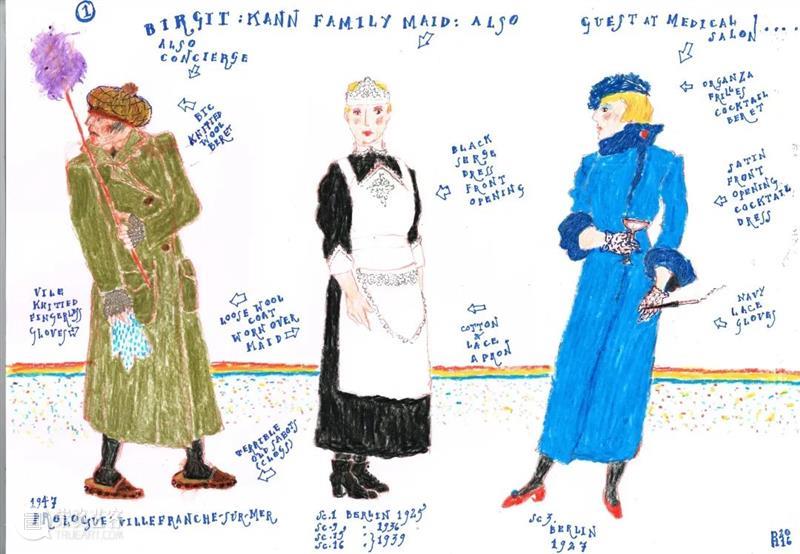 1
BIRGIT: KANN FAMILY MAID: ALSO
ALSO
CONCIERGE
GUEST AT MEDICAL
SALON....
BIG
KNITTED
WOOL
BERET
ORGANZA
FRILLES
COCKTAIL
BERET
BLACK
SERGE
DRESS
FRONT
OPENING
SATIN
FRONT
OPENING
COCKTAIL
DRESS
VILE
KNITTED
FINGERLESS
GLOVES
LOOSE WOOL
COAT
WORN OVER
MAID
COTTON
&
LACE
APRON
NAVY
LACE
GLOVES
TERRIBLE
OLD SABOTS
(CLOGS)
1947
PROLOGUE VILLEFRANCHE-SUR-MER
SC.1 BERLIN 1925
SC.9 " 1936
SC.15 " } 1939
SC.16
SC 3.
BERLIN
1927